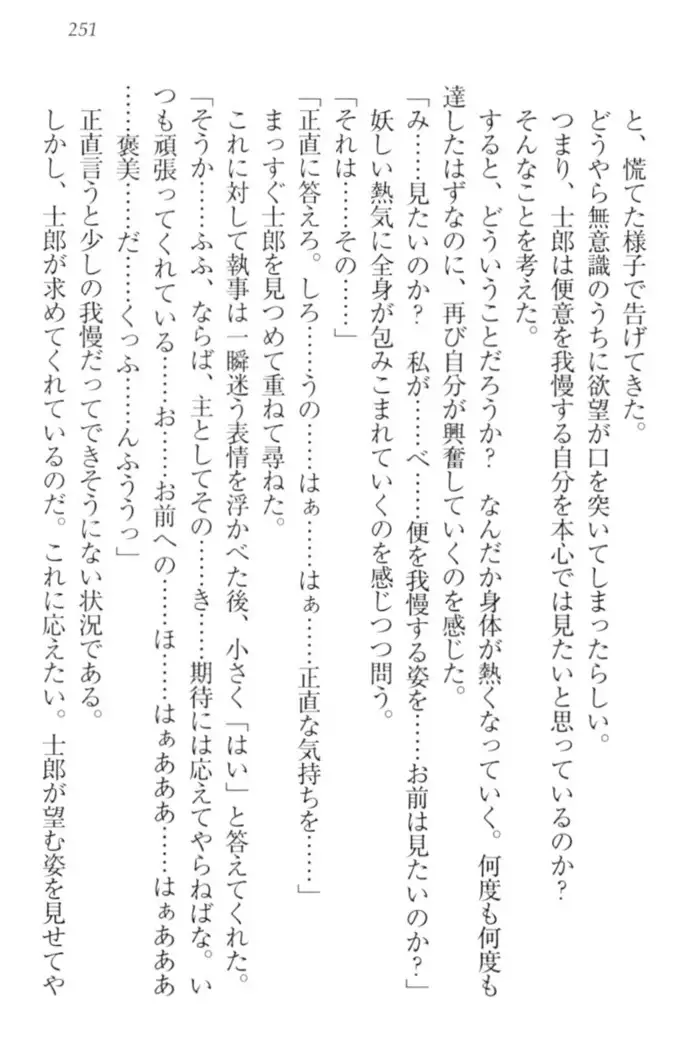 251
と、慌てた様子で告げてきた。
どうやら無意識のうちに欲望が口を突いてしまったらしい。
つまり、士郎は便意を我慢する自分を本心では見たいと思っているのか?
そんなことを考えた。
すると、どういうことだろうか? なんだか身体が熱くなっていく。何度も何度も
達したはずなのに、再び自分が興奮していくのを感じた。
「み……見たいのか? 私が……べ……便を我慢する姿を……お前は見たいのか?」
妖しい熱気に全身が包みこまれていくのを感じつつ問う。
「それは……その……」
「正直に答えろ。しろ……うの……はぁ……はぁ……正直な気持ちを……」
まっすぐ士郎を見つめて重ねて尋ねた。
これに対して執事は一瞬迷う表情を浮かべた後、小さく「はい」と答えてくれた。
「そうか……ふふ、ならば、主としてその……き……期待には応えてやらねばな。い
つも頑張ってくれている……お……お前への……ほ……はぁあああ……はぁあああ
……褒美……だ……くっふ……んふううっ」
正直言うと少しの我慢だってできそうにない状況である。
しかし、士郎が求めてくれているのだ。これに応えたい。士郎が望む姿を見せてや